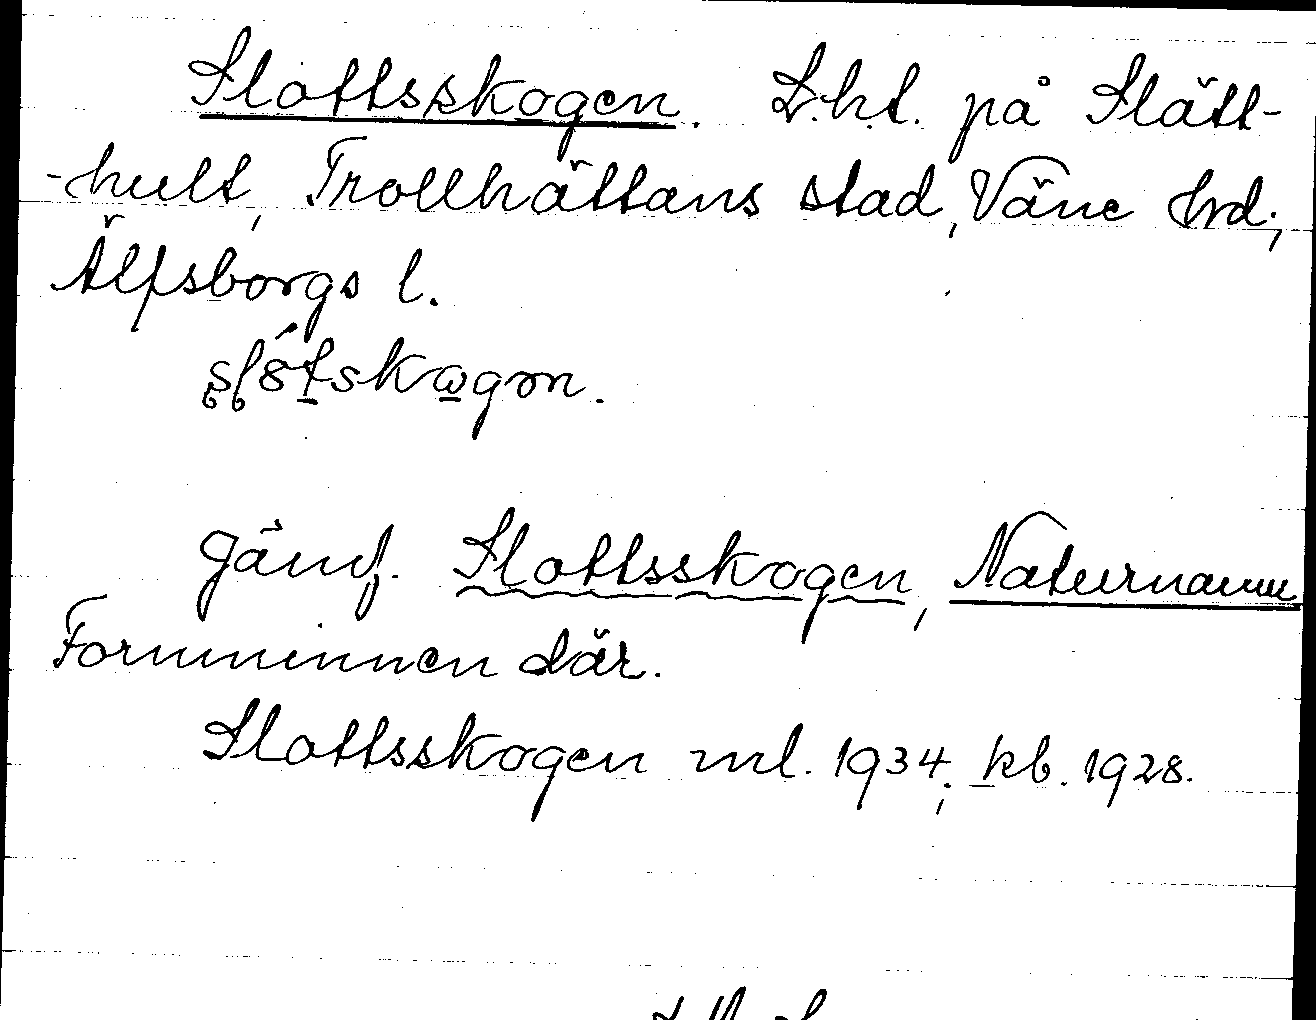 Slottsskogen. L.ht. på Slätt-
-hult, Trollhättans stad, Väne hrd.,
Älfsborgs l.
Jämf. Slottsskogen, Naturnamn
Fornminnen där.
Slottsskogen ml. 1934; kb. 1928.